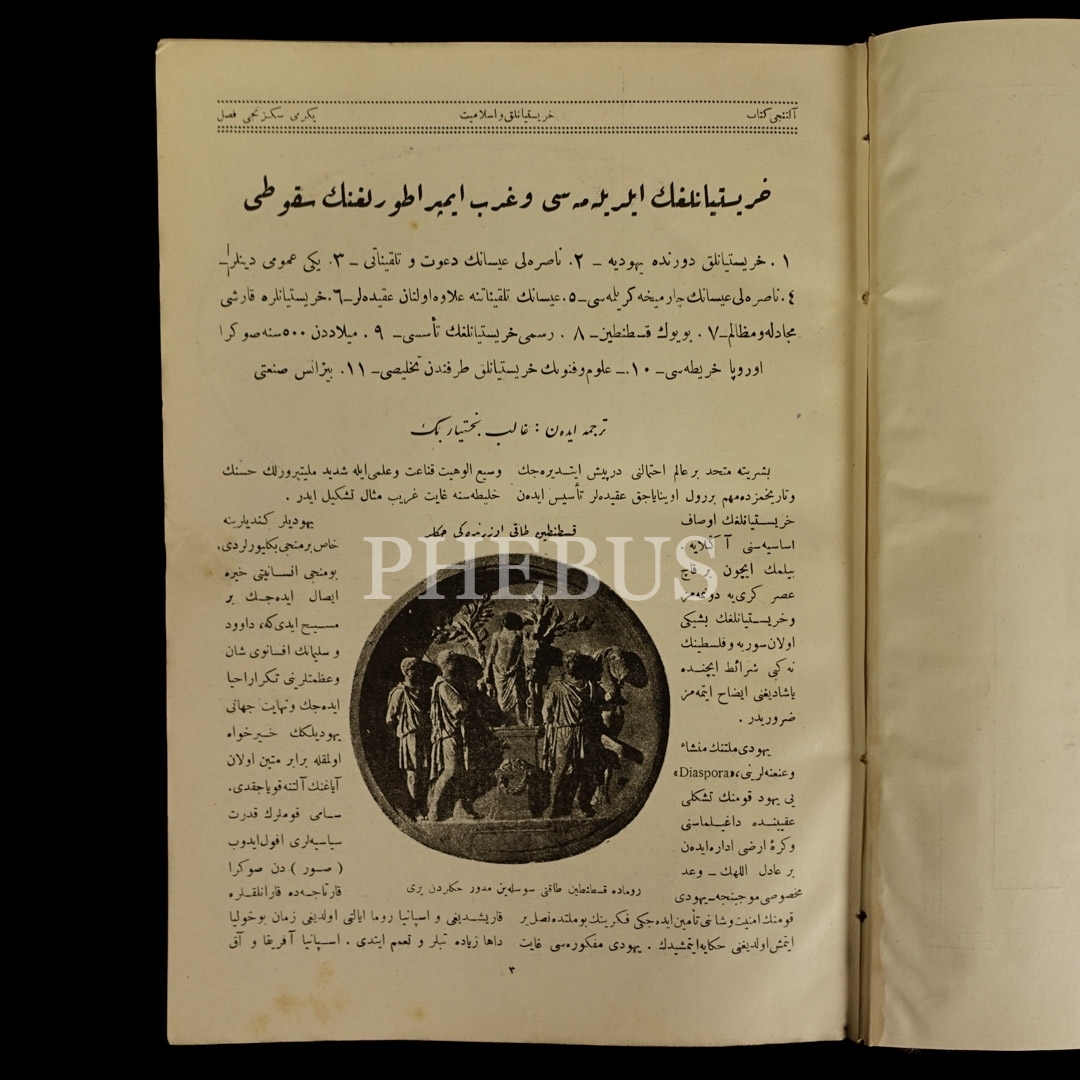 آلتنجی کتاب
خریستیانلق و اسلامیت
یکرمی سکزنجی فصل
خریستیانلغك ایلریله‌مه‌سی و غرب ایمپراطورلغنك سقوطی
۱. خریستیانلق دورنده یهودیه ـ ۲. ناصره‌لی عیسانك دعوت و تلقیناتی ـ ۳. یکی عمومی دینلر ـ
٤. ناصره‌لی عیسانك چارمیخه کریله‌سی ـ ٥. عیسانك تلقیناتنه علاوه اولنان عقیده‌لر ـ ٦. خریستیانلره قارشی
مجادله و مظالم ـ ۷. بویوك قسطنطین ـ ۸. رسمی خریستیانلغك تأسسی ـ ۹. میلاددن ٥۰۰ سنه صوکرا
اوروپا خریطه‌سی ـ ۱۰. ـ علوم و فنونك خریستیانلق طرفندن تخلیصی ـ ۱۱. بیزانس صنعتی
ترجمه ایده‌ن : غالب بختیار بك
بشریته متحد بر عالم احتمالنی درپیش ایتدیره‌جك
و تاریخمزده مهم بر رول اوینایاجق عقیده‌لر تأسیس ایده‌ن
خریستیانلغك اوصاف
اساسیه‌سنی آ کلایه
بیلمك ایچون بر قاچ
عصر کری‌یه دونمه‌مز
و خریستیانلغك بشیکی
اولان سوریه و فلسطینك
نه کبی شرائط ایچنده
یاشادیغنی ایضاح ایتمه‌مز
ضروریدر .
یهودی ملتنك منشاء
و عنعنه‌لرینی، «Diaspora»
یی یهود قومنك تشکلی
عقیبنده داغیلماسنی
و کرۀ ارضی اداره ایده‌ن
بر عادل اللهك ـ وعد
مخصوصی موجبنجه ـ یهودی
قومنك امنیت و شاننی تأمین ایده‌جکی فکرینك بو ملتده نصل بر
ایتمش اولدیغنی حکایه ایتمشیدك . یهودی مفکوره‌سی غایت
وسیع الوهیت قناعت و علمی ایله شدید ملیتپرورلك حسنك
خلیطه‌سنه غایت غریب مثال تشکیل ایدر .
یهودیلر کندیلرینه
خاص بر منجی بکلیورلردی.
بو منجی افسانیتی خیره
ایصال ایده‌جك بر
مسیح ایدی که، داوود
و سلیمانك افسانوی شان
و عظمتلرینی تکرار احیا
ایده‌جك و نهایت جهانی
یهودیلکك خیرخواه
اولمقله برابر متین اولان
آیاغنك آلتنه قویاجقدی.
سامی قوملرك قدرت
سیاسیه‌لری افول ایدوب
(صور) دن صوکرا
قارتاجه‌ده قارانلقلره
قاریشدیغی و اسپانیا روما ایالتی اولدیغی زمان بو خولیا
داها زیاده تبلر و تعمم ایتدی . اسپانیا آفریقا و آق
قسطنطین طاقی اوزرنده‌کی حکلر
روماده قسطنطین طاقنی سوسله‌ین مدور حکلردن بری
۳
PHEBUS